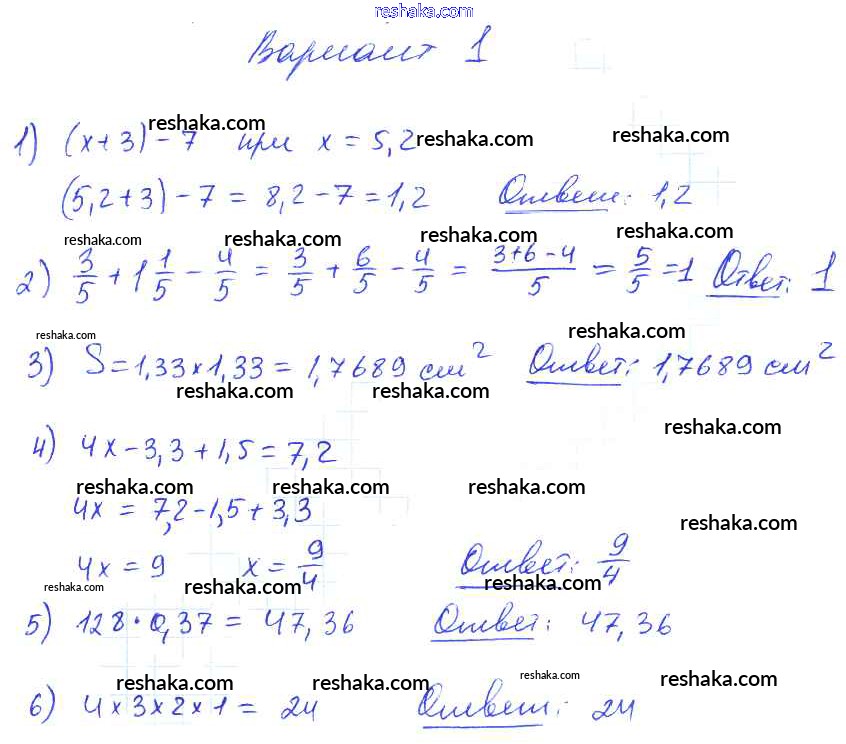 reshaka.com
Вариант 1
reshaka.com
1) (x+3)-7 при x = 5,2 reshaka.com reshaka.com
(5,2+3)-7 = 8,2-7=1,2 Ответ: 1,2
reshaka.com reshaka.com reshaka.com reshaka.com
2) 3/5 + 1 1/5 - 4/5 = 3/5 + 6/5 - 4/5 = (3+6-4)/5 = 5/5 = 1 Ответ: 1
reshaka.com reshaka.com
3) S=1,33×1,33=1,7689 см² Ответ: 1,7689 см²
reshaka.com reshaka.com
reshaka.com
4) 4x-3,3+1,5=7,2
reshaka.com reshaka.com reshaka.com
4x = 7,2-1,5+3,3
reshaka.com
4x = 9 x = 9/4 Ответ: 9/4
reshaka.com reshaka.com reshaka.com
5) 128·0,37 = 47,36 Ответ: 47,36
reshaka.com reshaka.com reshaka.com reshaka.com
6) 4×3×2×1 = 24 Ответ: 24